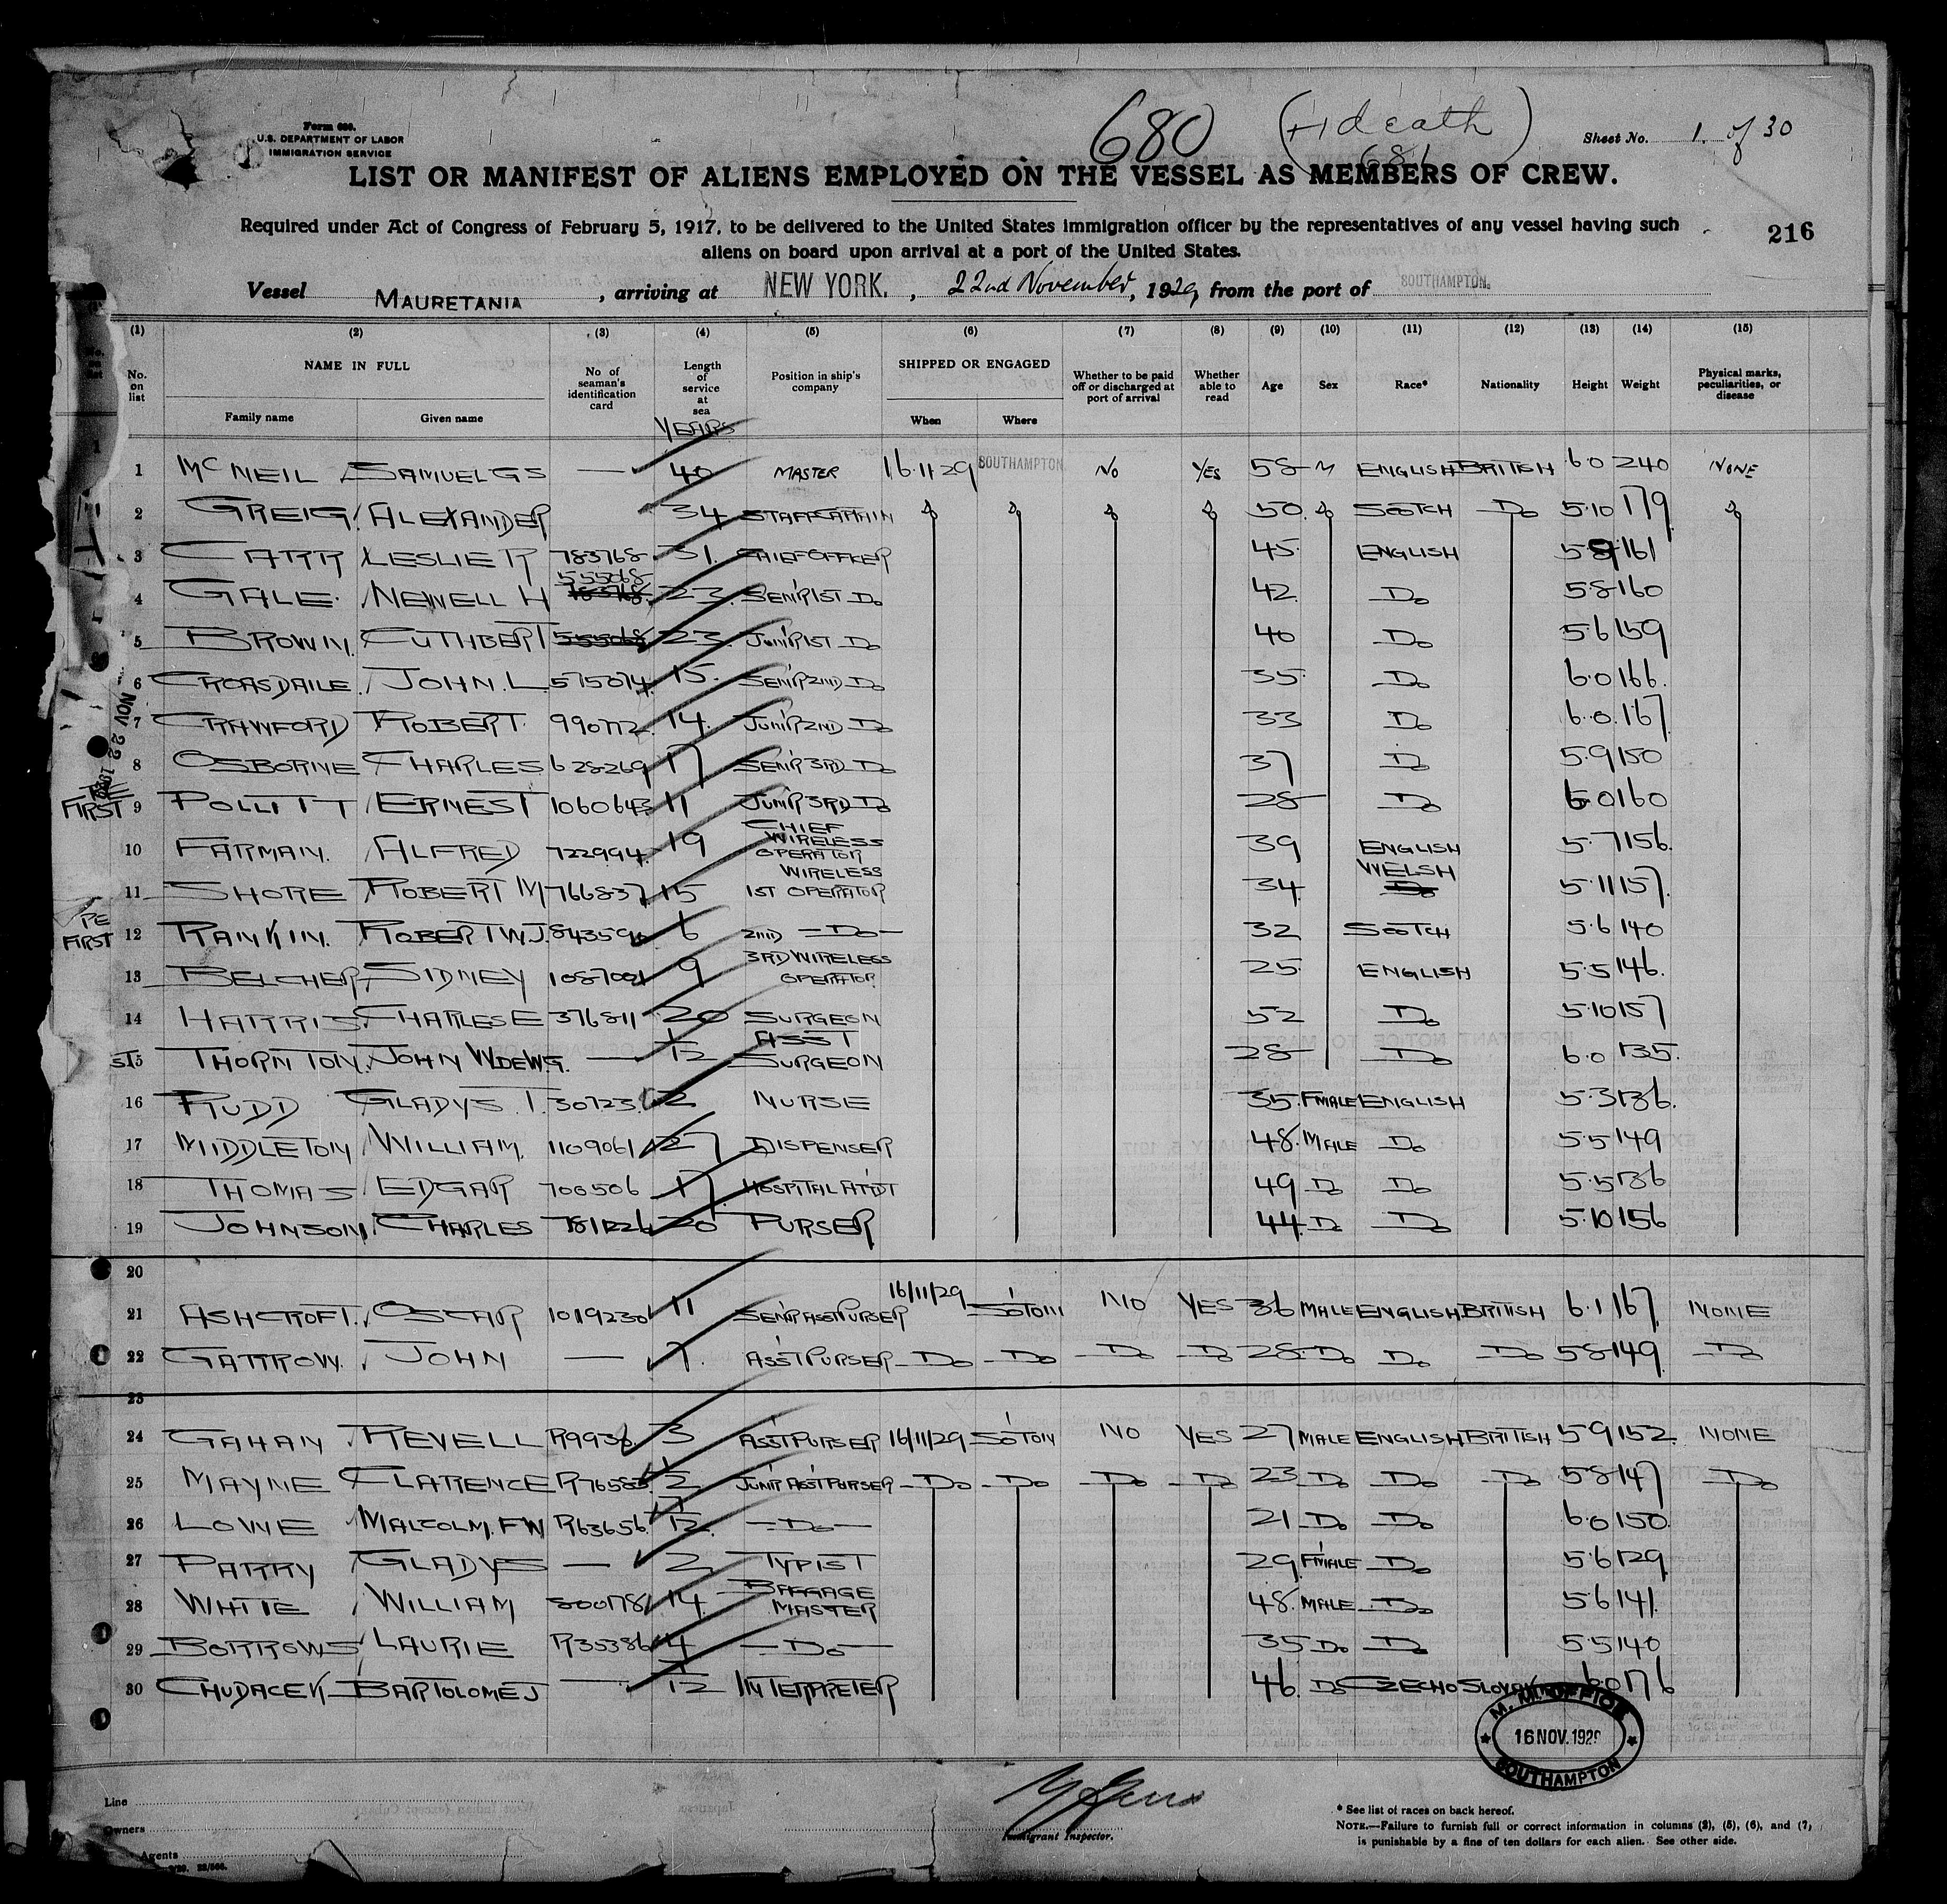 680 (+1 death)
681
Sheet No. 1. of 30
Form 680.
U.S. DEPARTMENT OF LABOR
IMMIGRATION SERVICE
LIST OR MANIFEST OF ALIENS EMPLOYED ON THE VESSEL AS MEMBERS OF CREW.
Required under Act of Congress of February 5, 1917, to be delivered to the United States immigration officer by the representatives of any vessel having such
aliens on board upon arrival at a port of the United States.
216
Vessel MAURETANIA, arriving at NEW YORK., 22nd November, 1929, from the port of SOUTHAMPTON.
(1) (2) (3) (4) (5) (6) (7) (8) (9) (10) (11) (12) (13) (14) (15)
No. on list NAME IN FULL Family name Given name No of seaman's identification card Length of service at sea Position in ship's company SHIPPED OR ENGAGED When Where Whether to be paid off or discharged at port of arrival Whether able to read Age Sex Race* Nationality Height Weight Physical marks, peculiarities, or disease
YEARS
1 McNEIL SAMUEL GS — 40 MASTER 16.11.29 SOUTHAMPTON NO YES 58 M ENGLISH BRITISH 6.0 240 NONE
2 GREIG. ALEXANDER 34 STAFF CAPTAIN 50. SCOTCH Do 5.10 179
3 CARR LESLIE R 783768 31. CHIEF OFFICER 45. ENGLISH 5 9 161
4 GALE. NEWELL H 555068 23. SEN'R 1ST Do 42. Do 5.8 160
5 BROWN. CUTHBERT 555068 23. JUN'R 1ST Do 40 Do 5.6 159
6 CROASDAILE. JOHN. L 575074 15. SEN'R 2ND Do 35. Do 6.0 166.
7 CRAWFORD ROBERT. 990772 14. JUN'R 2ND Do 33 Do 6.0. 167
8 OSBORNE CHARLES 628269 17 SEN'R 3RD Do 37 Do 5.9 150
FIRST 9 POLLITT ERNEST 1060643 11 JUN'R 3RD Do 28 Do 6.0 160
10 FARMAN. ALFRED 722994 19 CHIEF WIRELESS OPERATOR 39 ENGLISH 5.7 156.
11 SHORE ROBERT M 766837 15 WIRELESS 1ST OPERATOR 34. WELSH Do 5.11 157.
PE FIRST 12 RANKIN. ROBERT W.J. 6 2ND —Do— 32 SCOTCH 5.6 140
13 BELCHER SIDNEY 9 3RD WIRELESS OPERATOR 25. ENGLISH 5.5 146.
14 HARRIS. CHARLES E 376811 20 SURGEON 52 Do 5.10 157
15 THORNTON. JOHN — 1/12 ASST SURGEON 28 Do 6.0 135.
16 RUDD GLADYS. T. 30723 2 NURSE 35. F'MALE ENGLISH 5.3 136.
17 MIDDLETON WILLIAM. 1109061 27 DISPENSER 48. MALE Do 5.5 149
18 THOMAS EDGAR 700506 17 HOSPITAL AT'DT 49 Do Do 5.5 136
19 JOHNSON. CHARLES 20 PURSER 44 Do Do 5.10 156
20
21 ASHCROFT. OSCAR 1019230 11 SEN'R ASS'T PURSER 16/11/29 SO'TON NO YES 36 MALE ENGLISH BRITISH 6.1 167. NONE
22 GARROW. JOHN — 7. ASS'T PURSER Do Do Do Do 28. Do Do Do 5.8 149 Do
23
24 GAHAN REVELL R9938 3 ASS'T PURSER 16/11/29 SO'TON NO YES 27 MALE ENGLISH BRITISH 5.9 152 NONE
25 MAYNE CLARENCE R76583 JUN'R ASS'T PURSER Do Do Do Do 23 Do Do Do 5.8 147 Do
26 LOWE MALCOLM. FW R63656. —Do— 21 Do Do 6.0 150
27 PARRY GLADYS — 2 TYPIST 29. F'MALE Do 5.6 129
28 WHITE WILLIAM 14 BAGGAGE MASTER 48. MALE Do 5.6 141.
29 BORROWS LAURIE R35386 4 —Do— 35 Do Do 5.5 140
30 CHUDACEK BARTOLOMEJ — 1/12 INTERPRETER 46. Do CZECHO SLOVAK 6.0 176
NOV 22
M. M. OFFICE
16 NOV. 1929
SOUTHAMPTON
Line
Owners
Agents
Immigrant Inspector.
* See list of races on back hereof.
NOTE.—Failure to furnish full or correct information in columns (2), (5), (6), and (7),
is punishable by a fine of ten dollars for each alien. See other side.